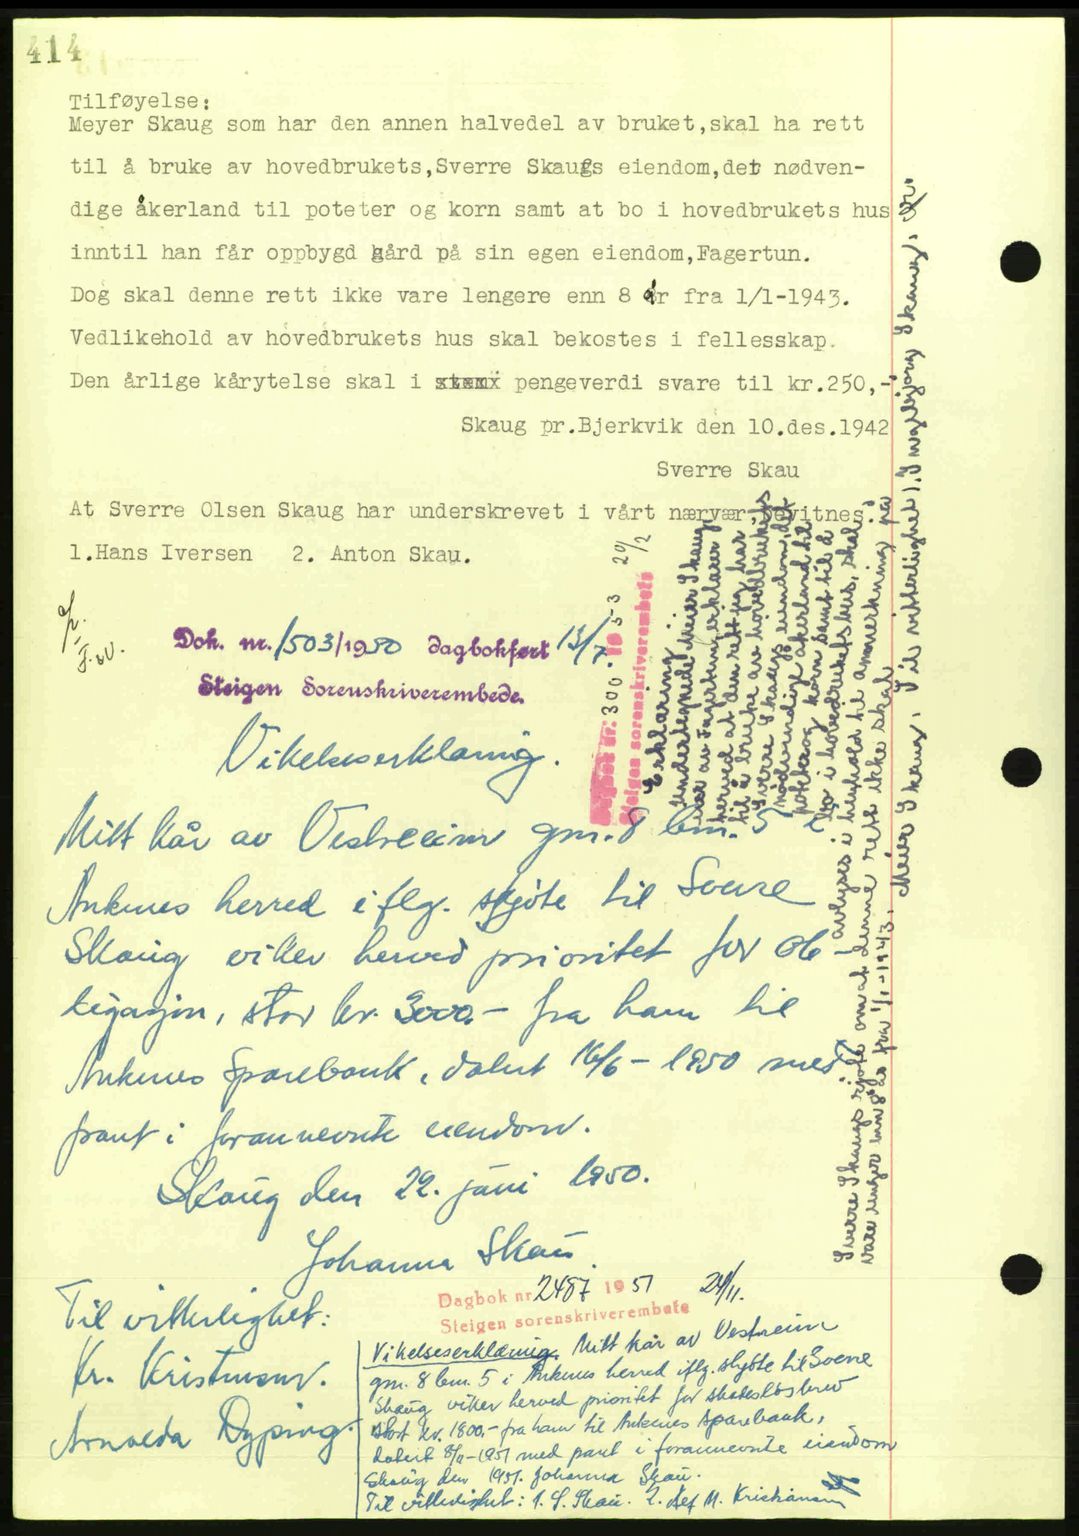 414
Tilføyelse:
Meyer Skaug som har den annen halvedel av bruket,skal ha rett
til å bruke av hovedbrukets,Sverre Skaugs eiendom,det nødven-
dige åkerland til poteter og korn samt at bo i hovedbrukets hus
inntil han får oppbygd gård på sin egen eiendom,Fagertun.
Dog skal denne rett ikke vare lengere enn 8 år fra 1/1-1943.
Vedlikehold av hovedbrukets hus skal bekostes i fellesskap.
Den årlige kårytelse skal i pengeverdi svare til kr.250,-
Skaug pr.Bjerkvik den 10.des.1942
Sverre Skau
At Sverre Olsen Skaug har underskrevet i vårt nærvær,bevitnes:
1.Hans Iversen   2. Anton Skau.
Dok. nr. 1503/1950 dagbokført 13/7.
Steigen Sorenskriverembede.
Vikelseserklæring.
Mitt kår av Vestreeim gnr. 8 bnr. 5 i
Ankenes herred iflg. skjøte til Sverre
Skaug viker herved prioritet for ob-
ligasjon, stor kr. 3000.- fra ham til
Ankenes Sparebank, datert 16/6-1950 med
pant i forannevnte eiendom.
Skaug den 22. juni 1950.
Johanna Skau.
Til vitterlighet:
Kr. Kristensen.
Arnolda Dyping.
Dagbok nr. 300 1953 20/2
Steigen sorenskriverembete
Erklæring
Undertegnede Meier Skaug,
eier av Fagertun erklærer
herved at den rett jeg har
til å bruke av hovedbrukets
Sverre Skaugs eiendom, det
nødvendige åkerland til
poteter og korn samt til å
bo i hovedbrukets hus, skal
avlyses i henhold til anmerkning på
Sverre Skaugs skjøte om at denne rett ikke skal
vare lenger enn 8 år fra 1/1-1943. Meier Skaug. Til vitterlighet: Ingebjørg Skaug.
Dagbok nr. 2487 1951 24/11.
Steigen sorenskriverembete
Vikelseserklæring. Mitt kår av Vestreim
gnr. 8 bnr. 5 i Ankenes herred iflg. skjøte til Sverre
Skaug viker herved prioritet for skadesløsbrev
stort kr. 1800.- fra ham til Ankenes Sparebank,
datert 8/11-1951 med pant i forannevnte eiendom
Skaug den 1951. Johanna Skau.
Til vitterlighet: 1. S. Skau. 2. M. Kristiansen